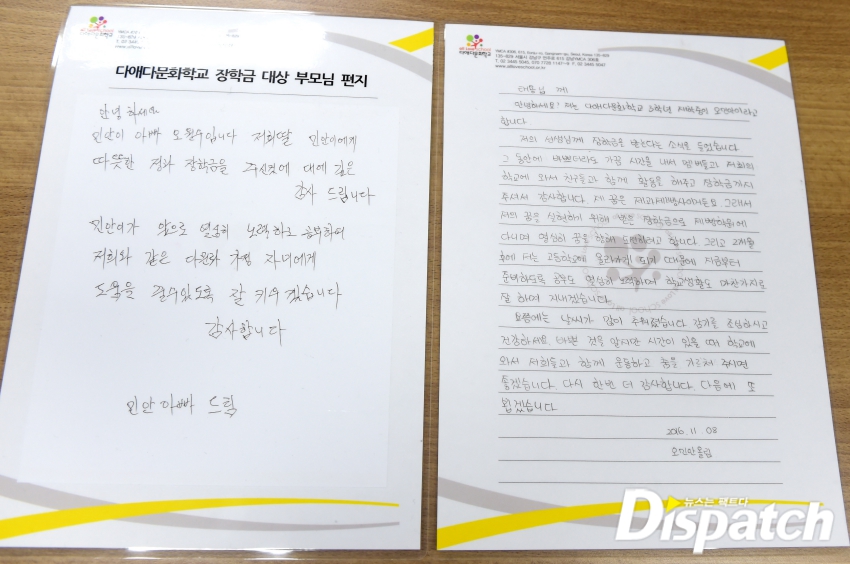 다애다문화학교 장학금 대상 부모님 편지
안녕 하세요
민안이 아빠 오왕수입니다 저희딸 민안이에게
따뜻한 정과 장학금을 주신것에 대에 깊은
감사 드립니다
민안이가 앞으로 열심히 노력하고 공부하여
저희와 같은 다문화 가정 자녀에게
도움을 줄수있도록 잘 키우겠습니다
감사합니다
민안아빠 드림
태용님 께
안녕하세요? 저는 다애다문화학교 3학년
합니다.
저의 선생님께 장학금을 받는다는 소식을 들었습니다.
그 동안에 바쁘더라도 가끔 시간을 내서 멤버들과 저희의
학교에 와서 친구들과 함께 활동을 해주고 장학금까지
주셔서 감사합니다. 제 꿈은 제과제빵사이거든요 그래서
저의 꿈을 실현하기 위해 받은 장학금으로 제빵학원에
다니며 열심히 꿈을 향해 도전하려고 합니다. 그리고 2개월
후에 저는 고등학교에 올라가게 되기 때문에 지금부터
준비하도록 공부도 열심히 노력하며 학교생활도 마찬가지로
잘 하며 지내겠습니다.
요즘에는 날씨가 많이 추워졌습니다 감기를 조심하시고
건강하세요. 바쁜 것을 알지만 시간이 있을 때 학교에
와서 저희들과 함께 운동하고 춤을 가르쳐 주시면
좋겠습니다. 다시 한번 더 감사합니다. 다음에 또
뵙겠습니다.
2016. 11 08
오민안올림
뉴스는 팩트다
Dispatch